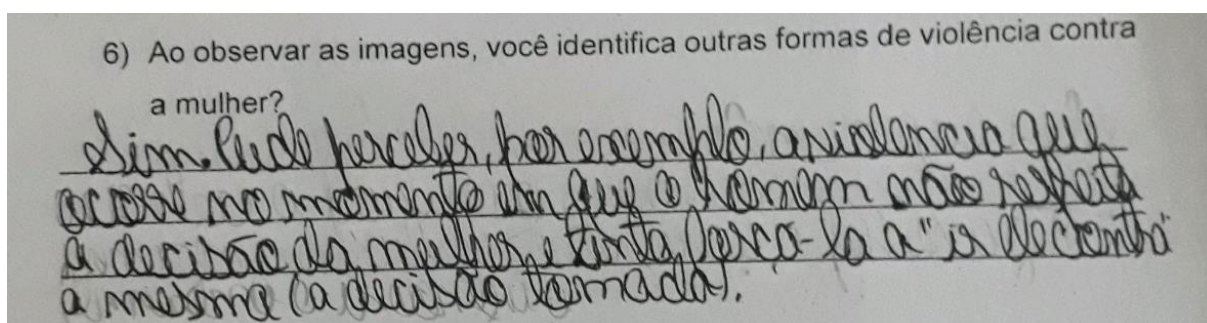 6) Ao observar as imagens, você identifica outras formas de violência contra
a mulher?
Sim. Pude perceber, por exemplo, a violencia que
ocorre no momento em que o homem não respeita
a decisão da mulher e tenta força-la a "ir de contra"
a mesma (a decisão tomada).